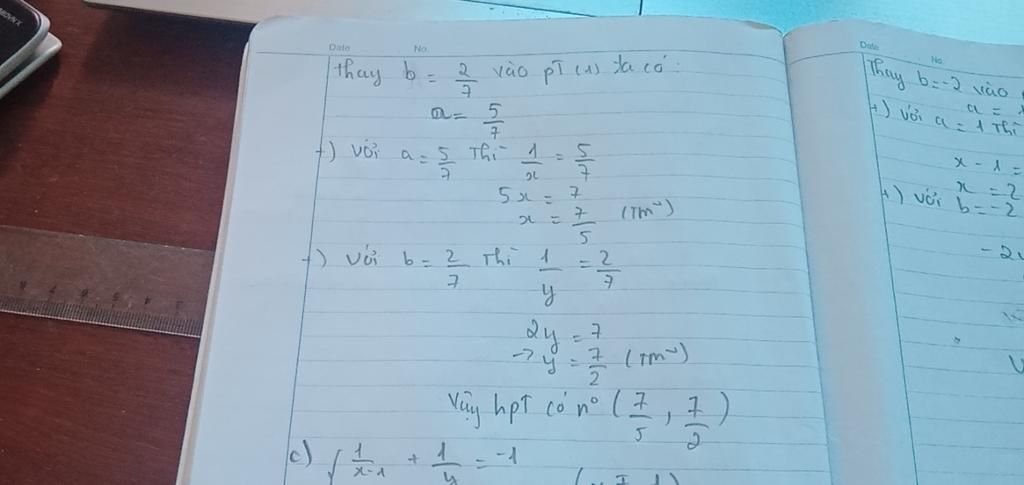 Date No.
Thay b = 2/7 vào pT (1) ta có:
a = 5/7
+) Với a = 5/7 Thì 1/x = 5/7
5x = 7
x = 7/5 (TM)
+) Với b = 2/7 Thì 1/y = 2/7
2y = 7
→ y = 7/2 (TM)
Vậy hpT có n° (7/5, 7/2)
c) 1/(x-1) + 1/y = -1
Date No.
Thay b = -2 vào
a = 1
+) Với a = 1 Thì
x - 1 =
x = 2
+) Với b = -2